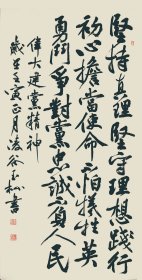 堅持真理堅守理想踐行
初心擔當使命不怕犧牲英
勇鬥爭對黨忠誠不負人民
偉大建黨精神
歲在壬寅正月谷玉松書